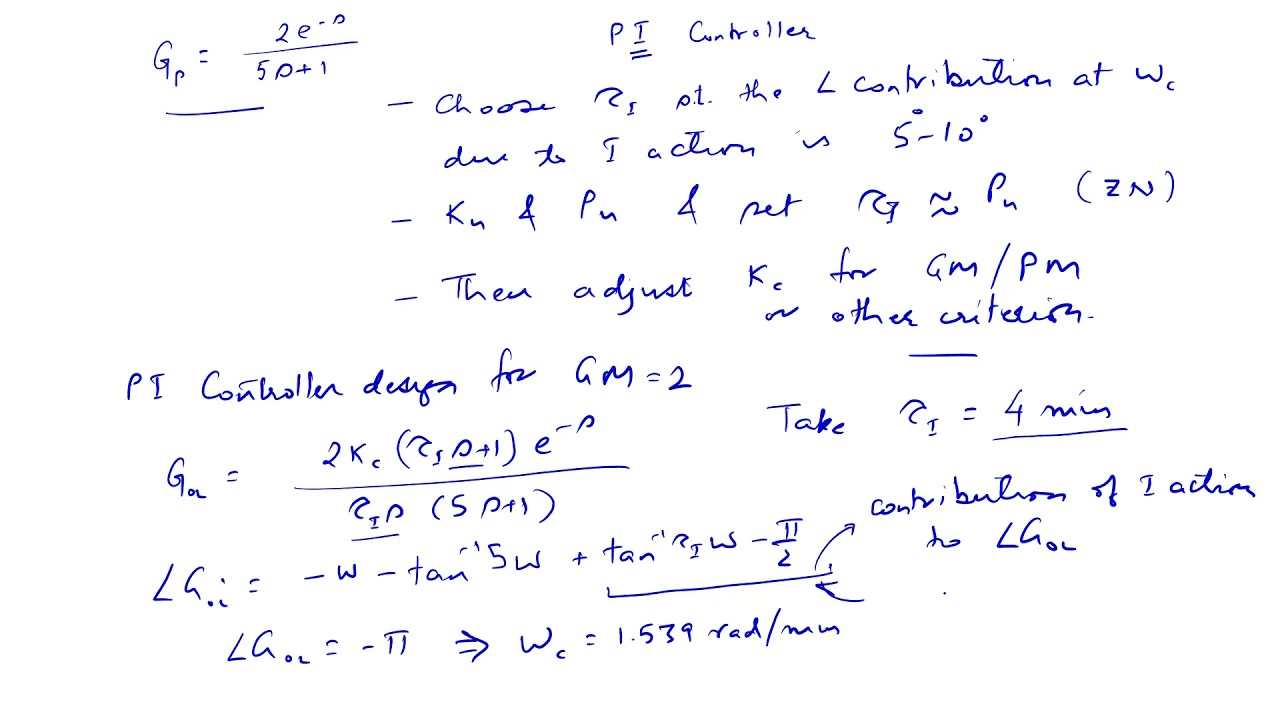 G_p = 2e^{-s} / (5s+1)
PI Controller
- Choose τ_I s.t. the ∠ contribution at ω_c
due to I action is 5°-10°
- K_u & P_u & set τ_I ≈ P_u (ZN)
- Then adjust K_c for GM/PM
or other criterion.
PI Controller design for GM=2
Take τ_I = 4 min
G_OL = 2K_c (τ_I s+1) e^{-s} / τ_I s (5s+1)
contribution of I action
to ∠G_OL
∠G_OL = -ω - tan^{-1} 5ω + tan^{-1} τ_I ω - π/2
∠G_OL = -π ⇒ ω_c = 1.539 rad/min